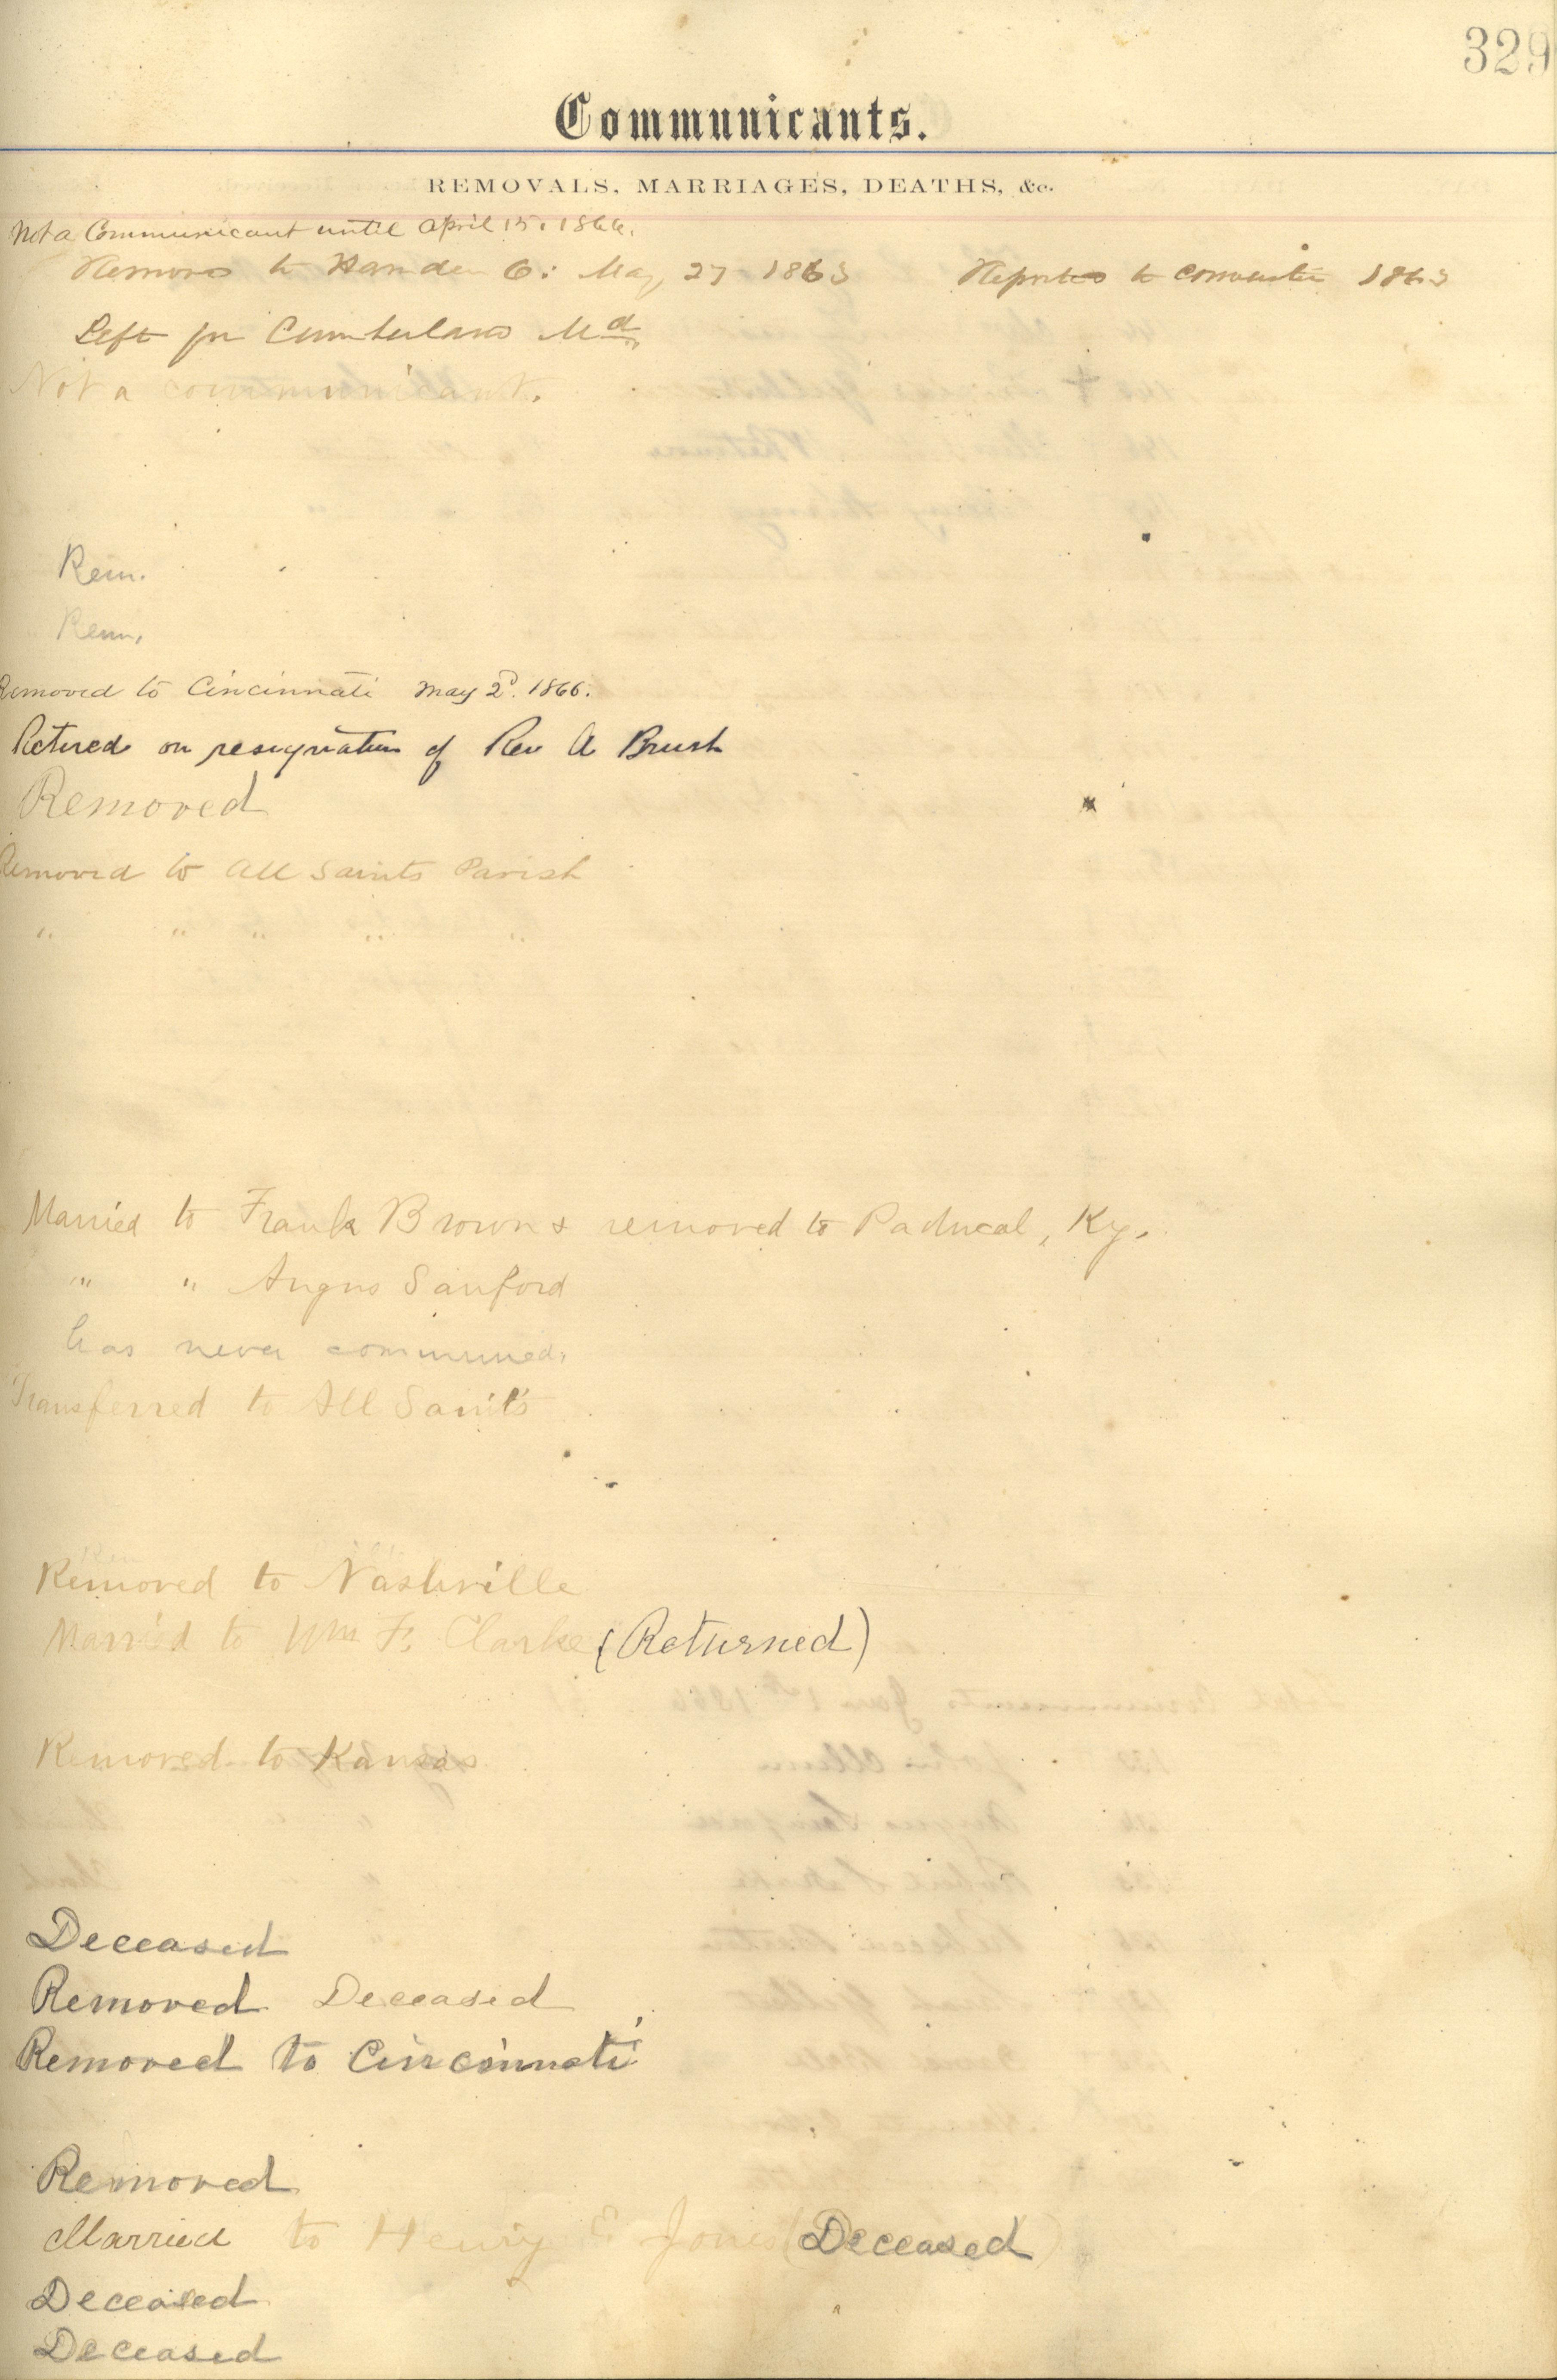 329
Communicants.
REMOVALS, MARRIAGES, DEATHS, &c.
Not a Communicant until April 15. 1866.
Removed to Hamden O: May 27 1863 Reported to convention 1863
Left for Cumberland Md.
Not a communicant.
Rem.
Rem.
Removed to Cincinnati May 2d. 1866.
Retired on resignation of Rev A Brush
Removed
Removed to All Saints Parish
" " " " "
Married to Frank Brown & removed to Paducal, Ky.
" " Angus Sanford
has never communed.
Transferred to All Saints
Removed to Nashville
Married to Wm F. Clarke (Returned)
Removed to Kansas
Deceased
Removed Deceased
Removed to Cincinnati
Removed
Married to Henry E Jones (Deceased)
Deceased
Deceased